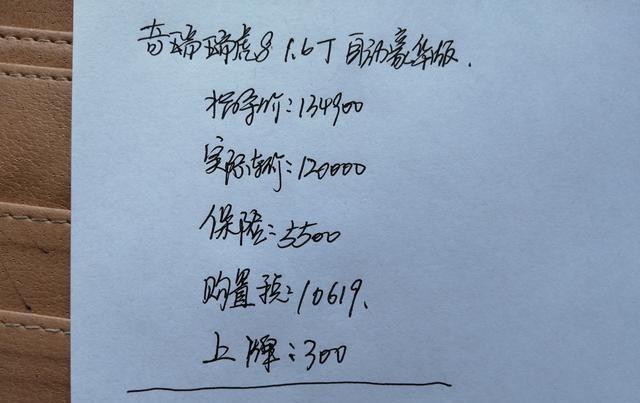 奇瑞瑞虎8 1.6T 自动豪华版.
指导价:134900
实际车价:120000
保险:5500
购置税:10619.
上牌:300